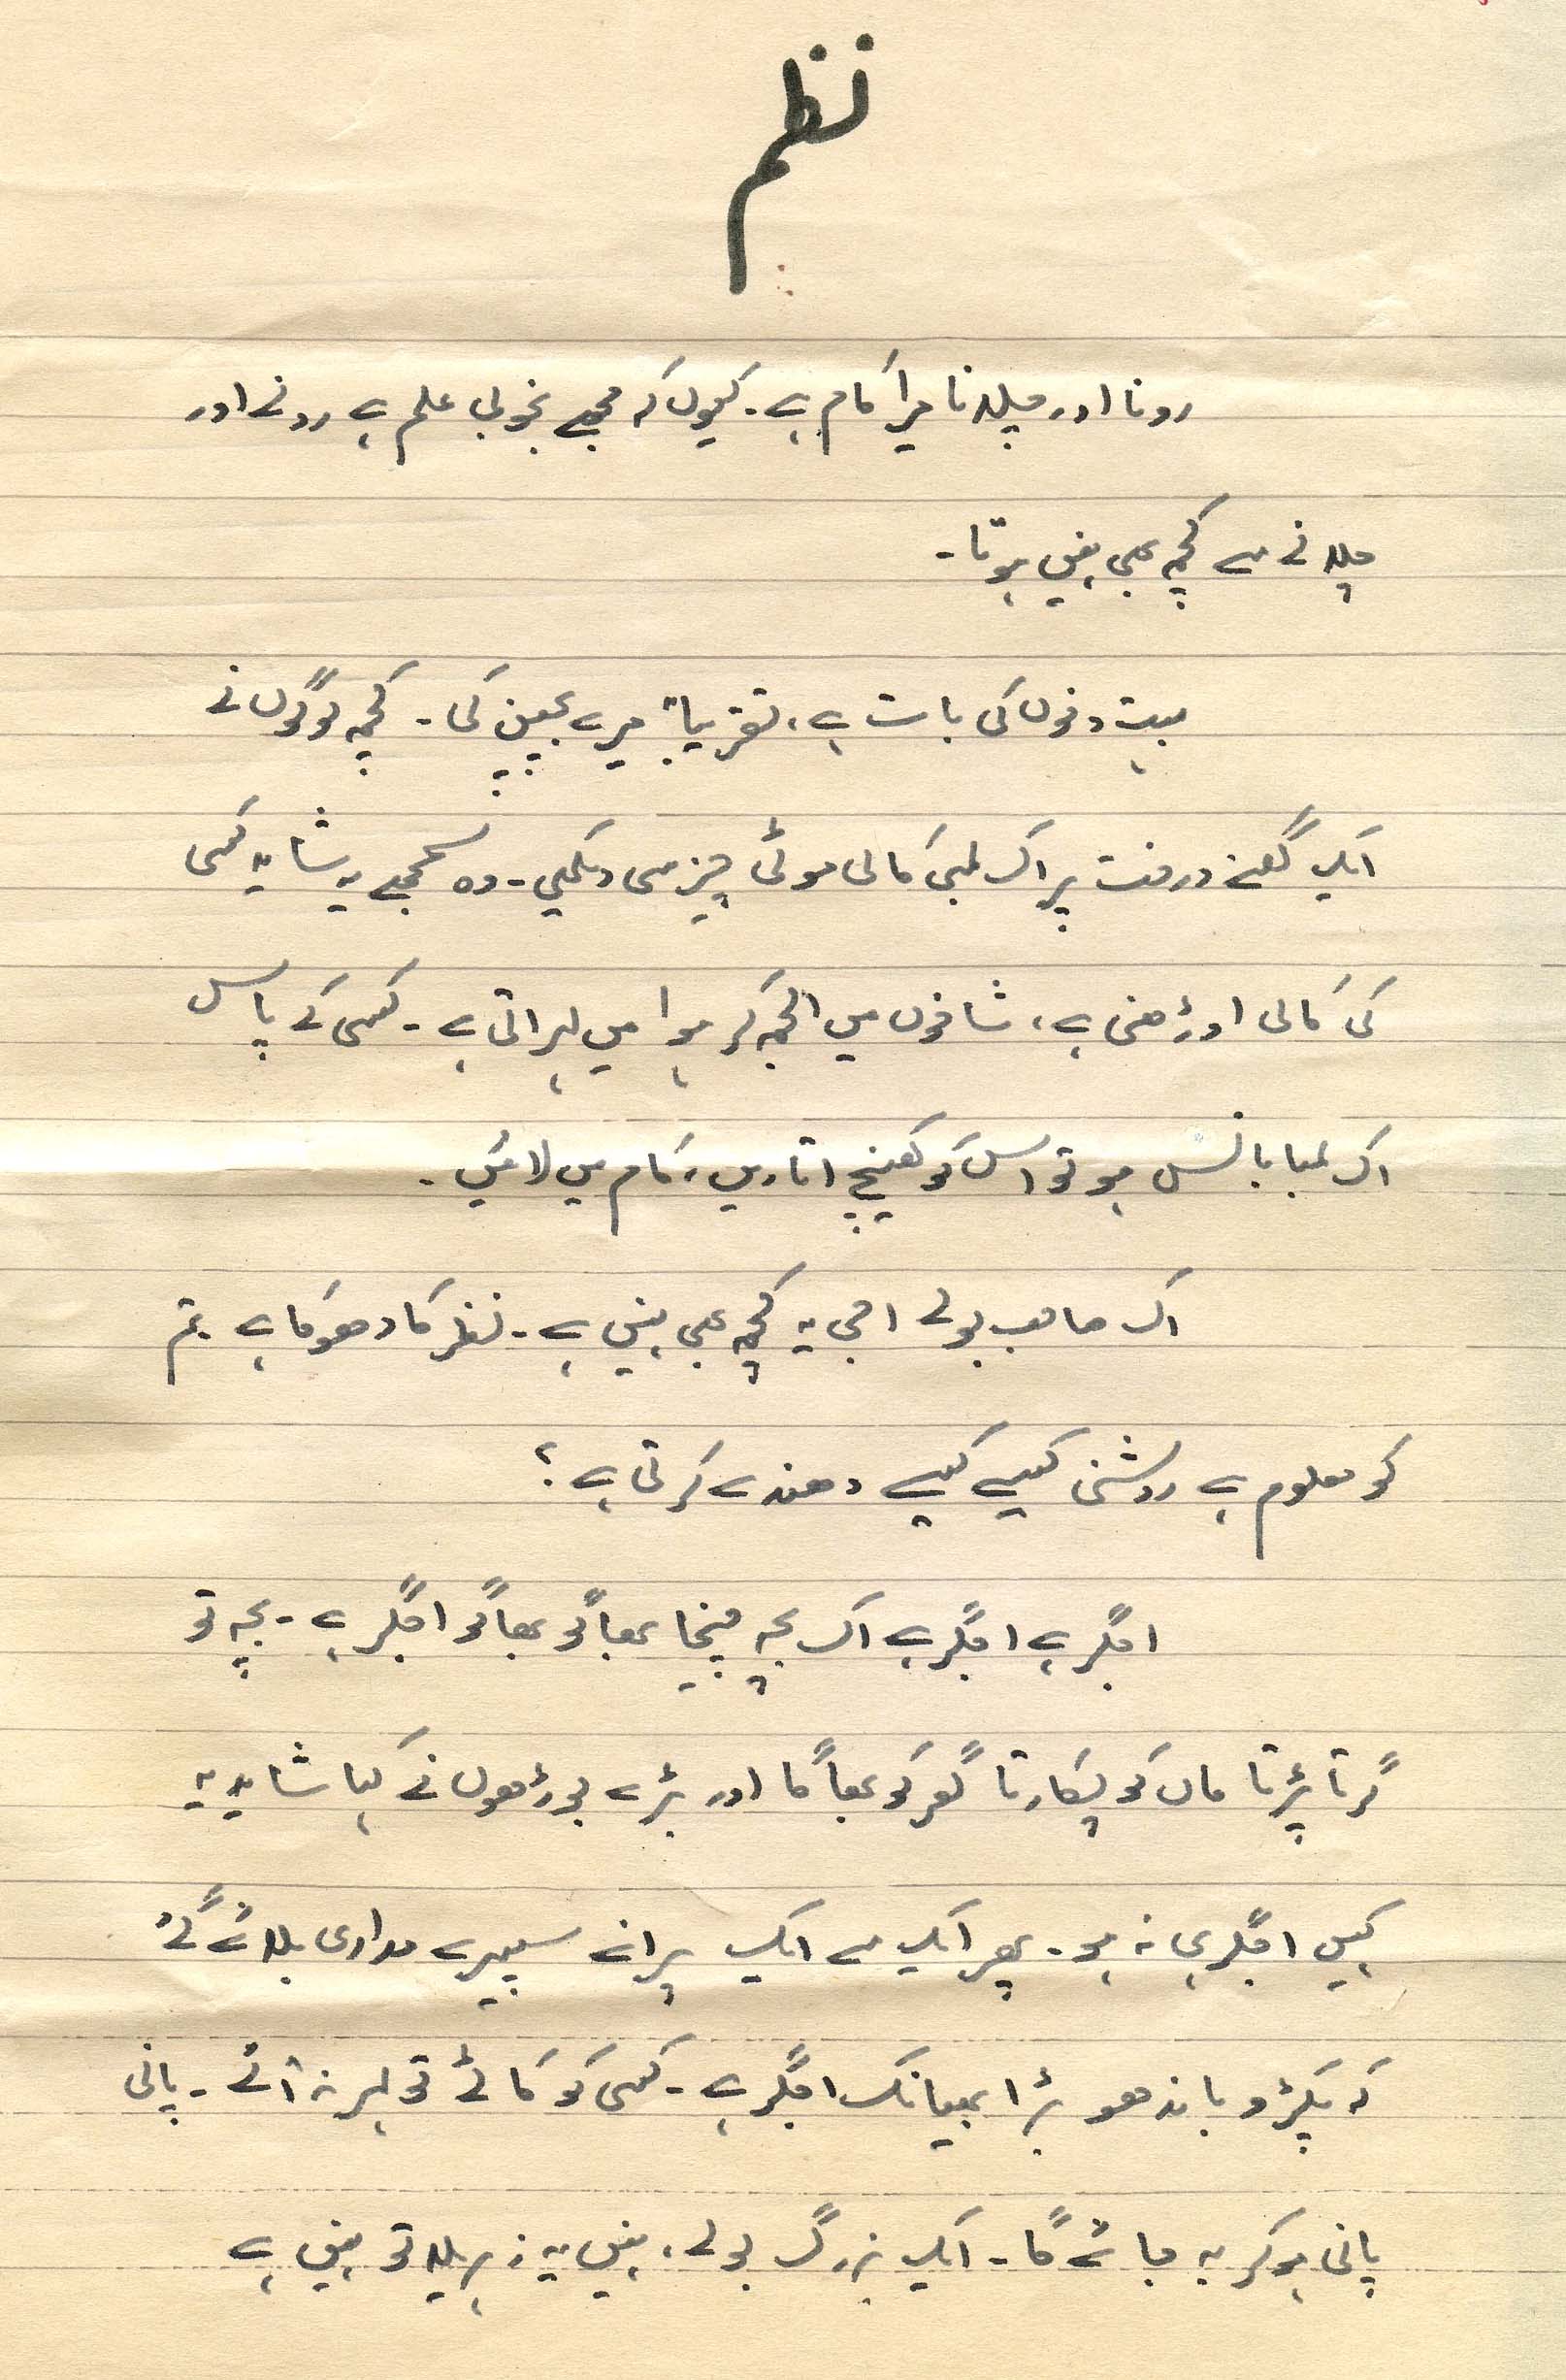 نظم
رونا اور چلانا میرا کام ہے۔ کیوں کہ مجھے بخوبی علم ہے رونے اور
چلانے سے کچھ بھی نہیں ہوتا۔
بہت دنوں کی بات ہے، تقریباً میرے بچپن کی۔ کچھ لوگوں نے
ایک گھنے درخت پر اک لمبی کالی موٹی چیز سی دیکھی۔ وہ سمجھے یہ شاید کسی
کی کالی اوڑھنی ہے، شاخوں میں الجھ کر ہوا میں لہراتی ہے۔ کسی کے پاس
اک لمبا بانس ہو تو اس کو کھینچ اتاریں، کام میں لائیں۔
اک صاحب بولے اجی یہ کچھ بھی نہیں ہے۔ نظر کا دھوکا ہے تم
کو معلوم ہے روشنی کیسے کیسے دھندے کرتی ہے؟
اجگر ہے اجگر ہے اک بچہ چیخا بھاگو بھاگو اجگر ہے۔ بچہ تو
گرتا پڑتا ماں کو پکارتا گھر کو بھاگا اور بڑے بوڑھوں نے کہا شاید یہ
کہیں اجگر ہی نہ ہو۔ پھر ایک سے ایک پرانے سپیرے مداری بلائے گئے
کہ پکڑو باندھو بڑا بھیانک اجگر ہے۔ کسی کو کاٹے تو لہر نہ آئے۔ پانی
پانی ہو کر بہ جائے گا۔ ایک بزرگ بولے، نہیں یہ زہریلا تو نہیں ہے